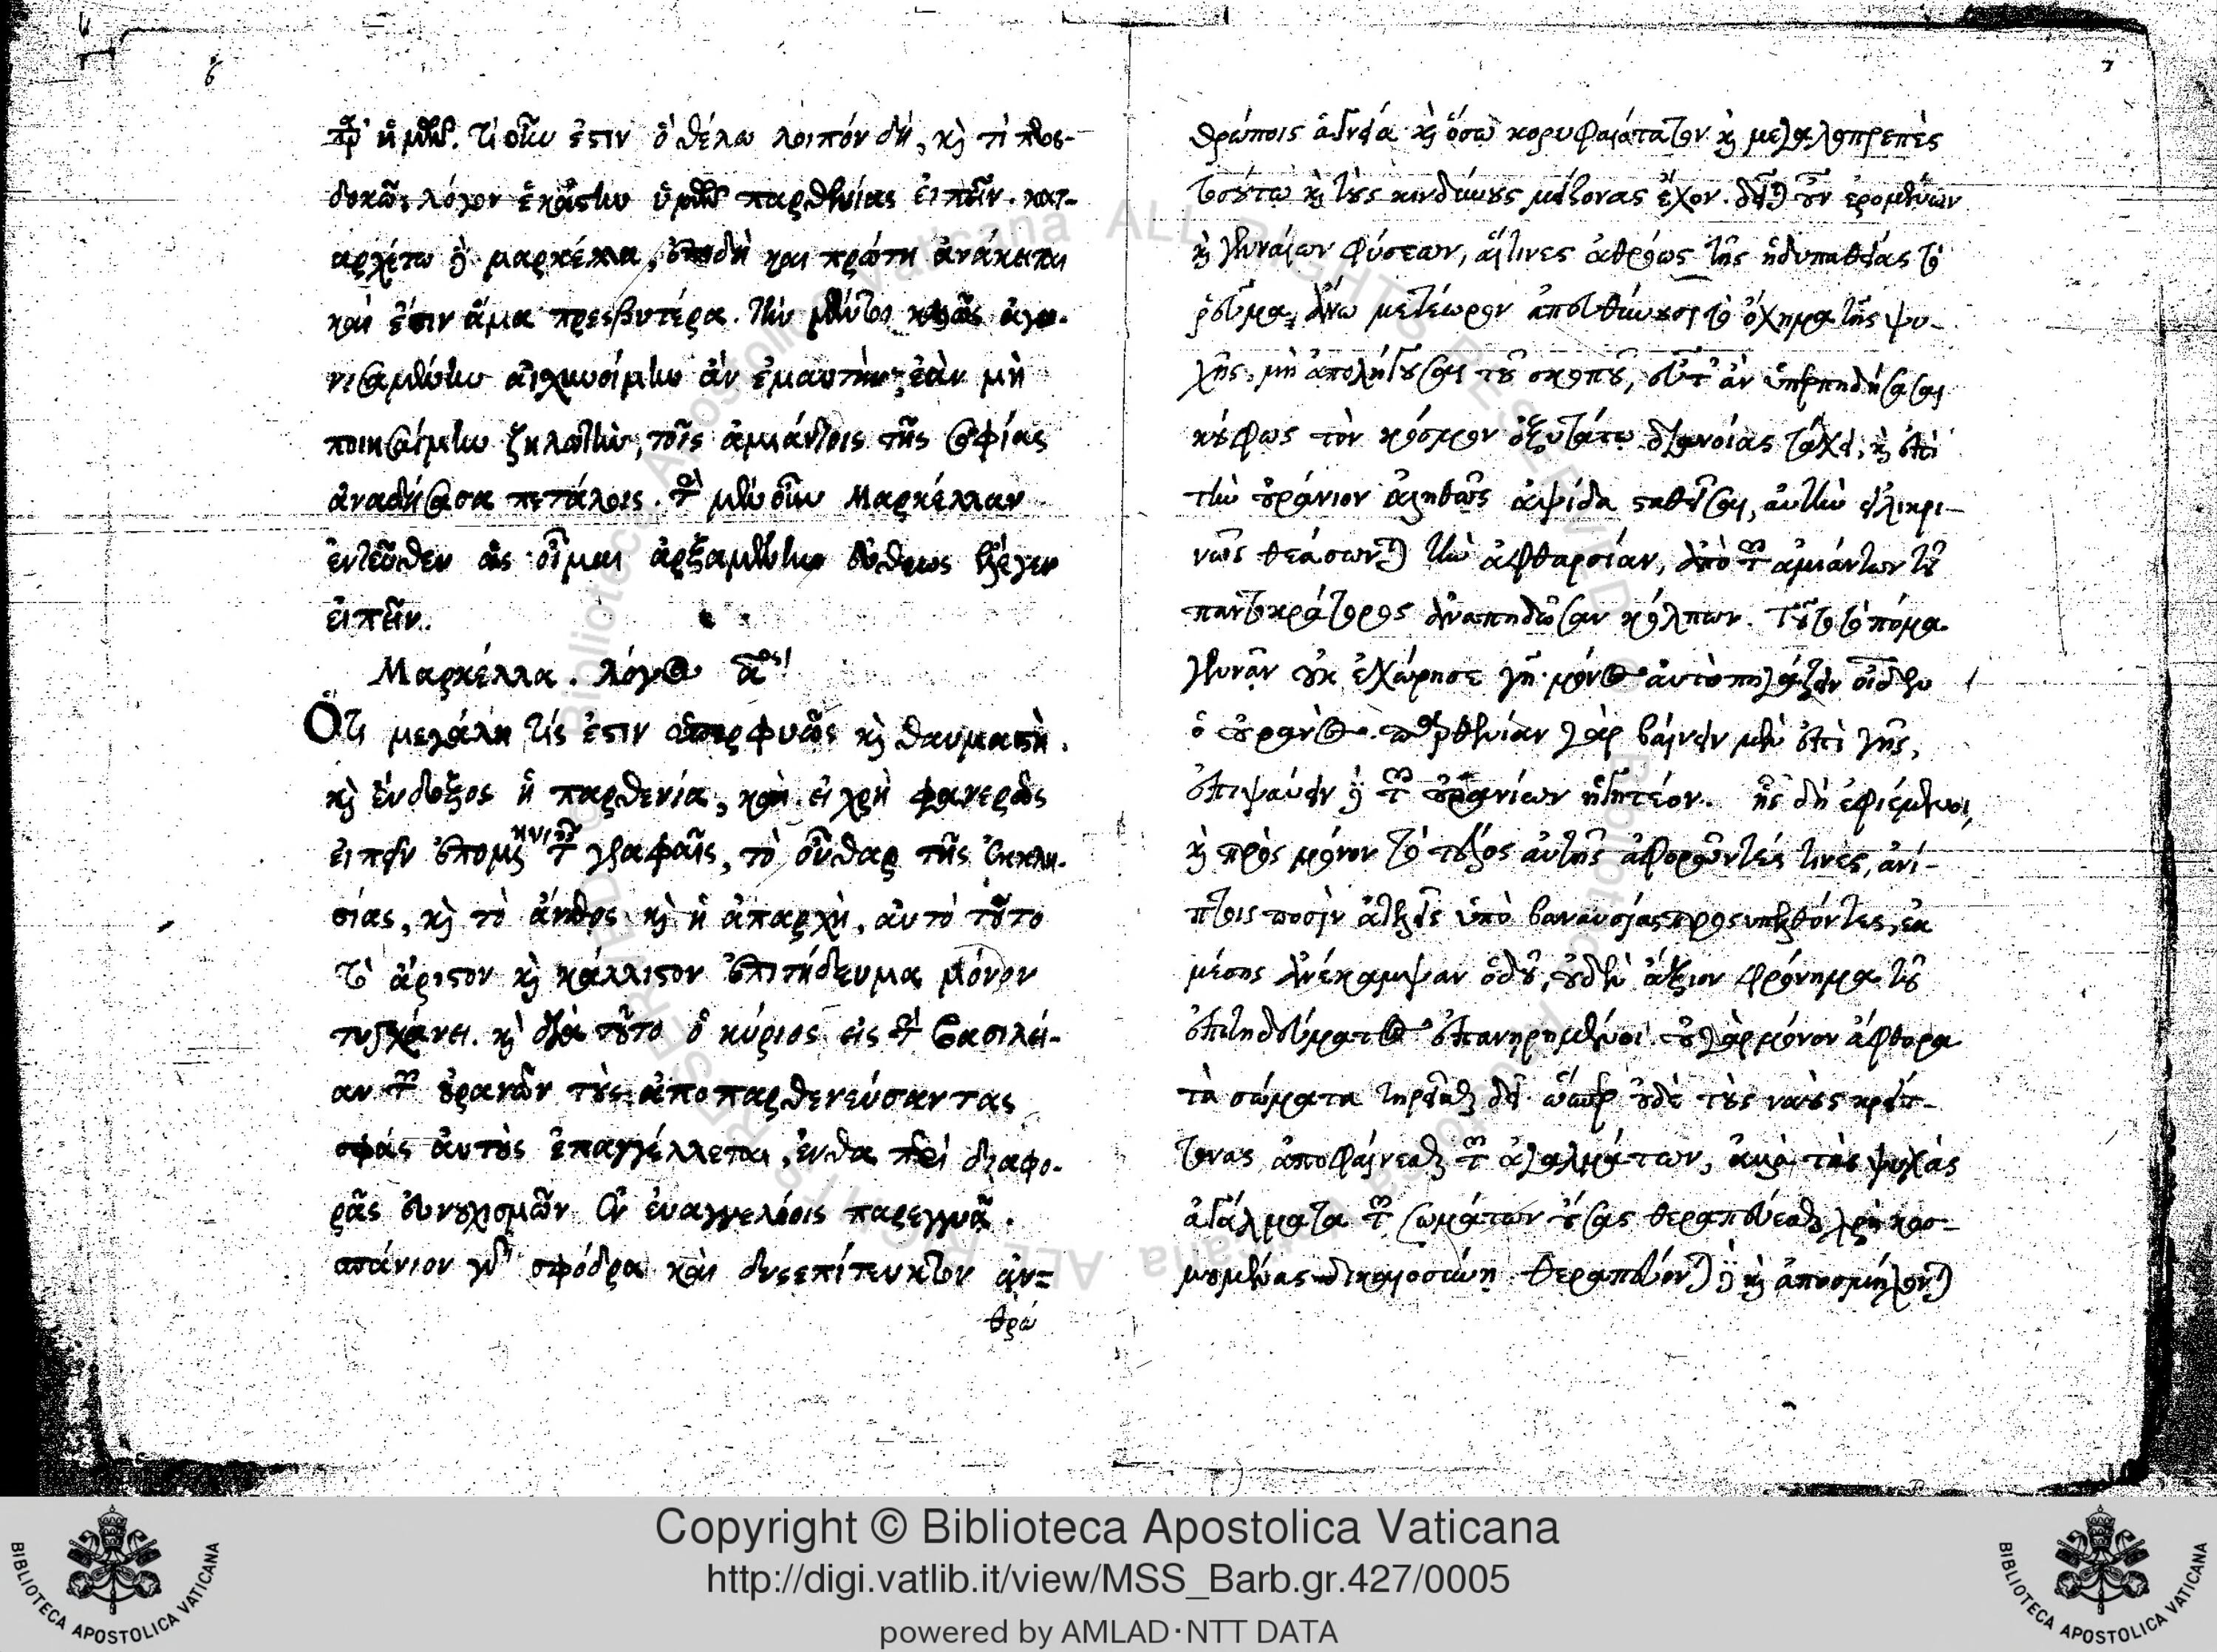 6
παρ' ἡμῶν. τί οὖν ἐστιν ὃ θέλω λοιπόν δή, καὶ τί προσ-
δοκῶ; λόγον ἑκάστην ὑμῶν παρθενίας εἰπεῖν. κατ-
αρχέτω δὲ μαρκέλλα, ἐπειδὴ καὶ πρώτη ἀνάκειται
καὶ ἔστιν ἅμα πρεσβυτέρα. τὴν μέντοι καλῶς ἀγω-
νισαμένην αἰσχυνοίμην ἂν ἐμαυτὴν, ἐὰν μὴ
ποιησαίμην ζηλωτὴν, τοῖς ἀμιάντοις τῆς σοφίας
ἀναδήσασα πετάλοις. τὴν μὲν οὖν Μαρκέλλαν
ἐντεῦθεν ὡς οἶμαι ἀρξαμένην εὐθέως ἔλεγεν
εἰπεῖν.
Μαρκέλλα. λόγος αος
Ὅτι μεγάλη τίς ἐστιν ὑπερφυῶς καὶ θαυμαστὴ
καὶ ἔνδοξος ἡ παρθενία, καὶ εἰ χρὴ φανερῶς
εἰπεῖν ἑπομένην ταῖς γραφαῖς, τὸ οὖθαρ τῆς ἐκκλη-
σίας, καὶ τὸ ἄνθος καὶ ἡ ἀπαρχὴ, αὐτὸ τοῦτο
τὸ ἄριστον καὶ κάλλιστον ἐπιτήδευμα μόνον
τυγχάνει. καὶ διὰ τοῦτο ὁ κύριος εἰς τὴν βασιλεί-
αν τῶν οὐρανῶν τοὺς ἀποπαρθενεύσαντας
σφᾶς αὐτοὺς ἐπαγγέλλεται, ἔνθα περὶ διαφο-
ρᾶς εὐνουχισμῶν ἐν εὐαγγελίοις παρεγγυᾷ.
σπάνιον γὰρ σφόδρα καὶ δυσεπίτευκτον ἀν-
θρώ
7
θρώποις ἁγνεία καὶ ὅσῳ κορυφαιότατον καὶ μεγαλοπρεπὲς
τοσούτῳ καὶ τοὺς κινδύνους μείζονας ἔχον. δεῖται οὖν ἐρρωμένων
καὶ γενναίων φύσεων, αἵτινες ἀθρόως τῆς ἡδυπαθείας τὸ
ῥεῦμα, ἄνω μετέωρον ἀπευθύνουσι τὸ ὄχημα τῆς ψυ-
χῆς, μὴ ἀπολήγουσαι τοῦ σκοποῦ, ἔστ' ἂν ὑπερπηδήσασαι
κούφως τὸν κόσμον ὀξυτάτῳ διανοίας τάχει, καὶ ἐπὶ
τὴν οὐράνιον ἀληθῶς ἁψῖδα σταθεῖσαι, αὐτὴν εἰλικρι-
νῶς θεάσωνται τὴν ἀφθαρσίαν, ἀπὸ τῶν ἀμιάντων τοῦ
παντοκράτορος ἀναπηδῶσαν κόλπων. τοῦτο τὸ πόμα
γεννᾶν οὐκ ἐχώρησε γῆ· μόνος αὐτὸ πηγάζειν οἶδεν
ὁ οὐρανός. παρθενίαν γὰρ βαίνειν μὲν ἐπὶ γῆς,
ἐπιψαύειν δὲ τῶν οὐρανίων ἡγητέον. ἧς δὴ ἐφιέμενοι,
καὶ πρὸς μόνον τὸ τέλος αὐτῆς ἀφορῶντές τινες, ἀνί-
πτοις ποσὶν ἀτελεῖς ὑπὸ βαναυσίας προσυπελθόντες, ἐκ
μέσης ἀνέκαμψαν ὁδοῦ, οὐδὲν ἄξιον φρόνημα τοῦ
ἐπιτηδεύματος ἐπανῃρημένοι. οὐ γὰρ μόνον ἄφθορα
τὰ σώματα τηρεῖσθαι δεῖ· ὥσπερ οὐδὲ τοὺς ναοὺς κρείτ-
τονας ἀποφαίνεσθαι τῶν ἀγαλμάτων, ἀλλὰ τὰς ψυχὰς
ἀγάλματα τῶν σωμάτων οὔσας θεραπεύεσθαι χρὴ κοσ-
μουμένας δικαιοσύνῃ. θεραπεύονται δὲ καὶ ἀποσμήχονται
Copyright © Biblioteca Apostolica Vaticana
http://digi.vatlib.it/view/MSS_Barb.gr.427/0005
powered by AMLAD·NTT DATA